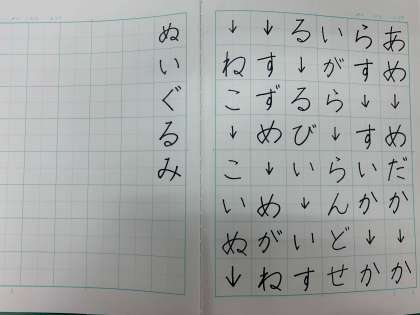 あめ↓めだか↓か
らす↓すいか↓か
いがら↓らんどせ
る↓るびい↓いす
↓すずめ↓めがね
↓ねこ↓こいぬ↓
ぬいぐるみ